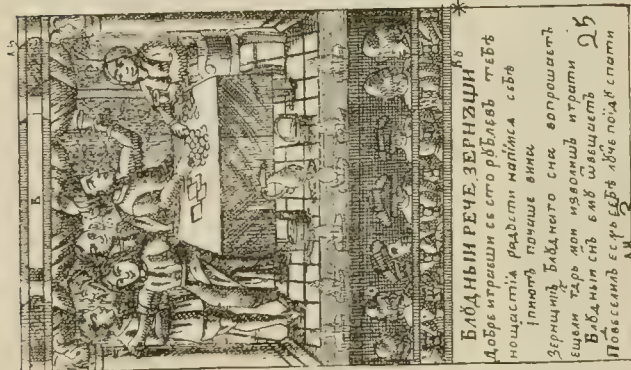 К
БЛꙊДНЫИ РЕЧЕ ЗЕРНЪЩИ
Добре играеши се сто рꙋблевъ тебѣ
нощастїа радости напїмса себѣ
Іпиютъ почаше вина
Зернщиъ Блꙋднаго сна вопрошаетъ
ещели гдрь мои изволишъ играти
Блꙋдныи снъ емꙋ ѿвещаетъ
Повеселилъ есрь себѣ лꙋче поідꙋ спати
25